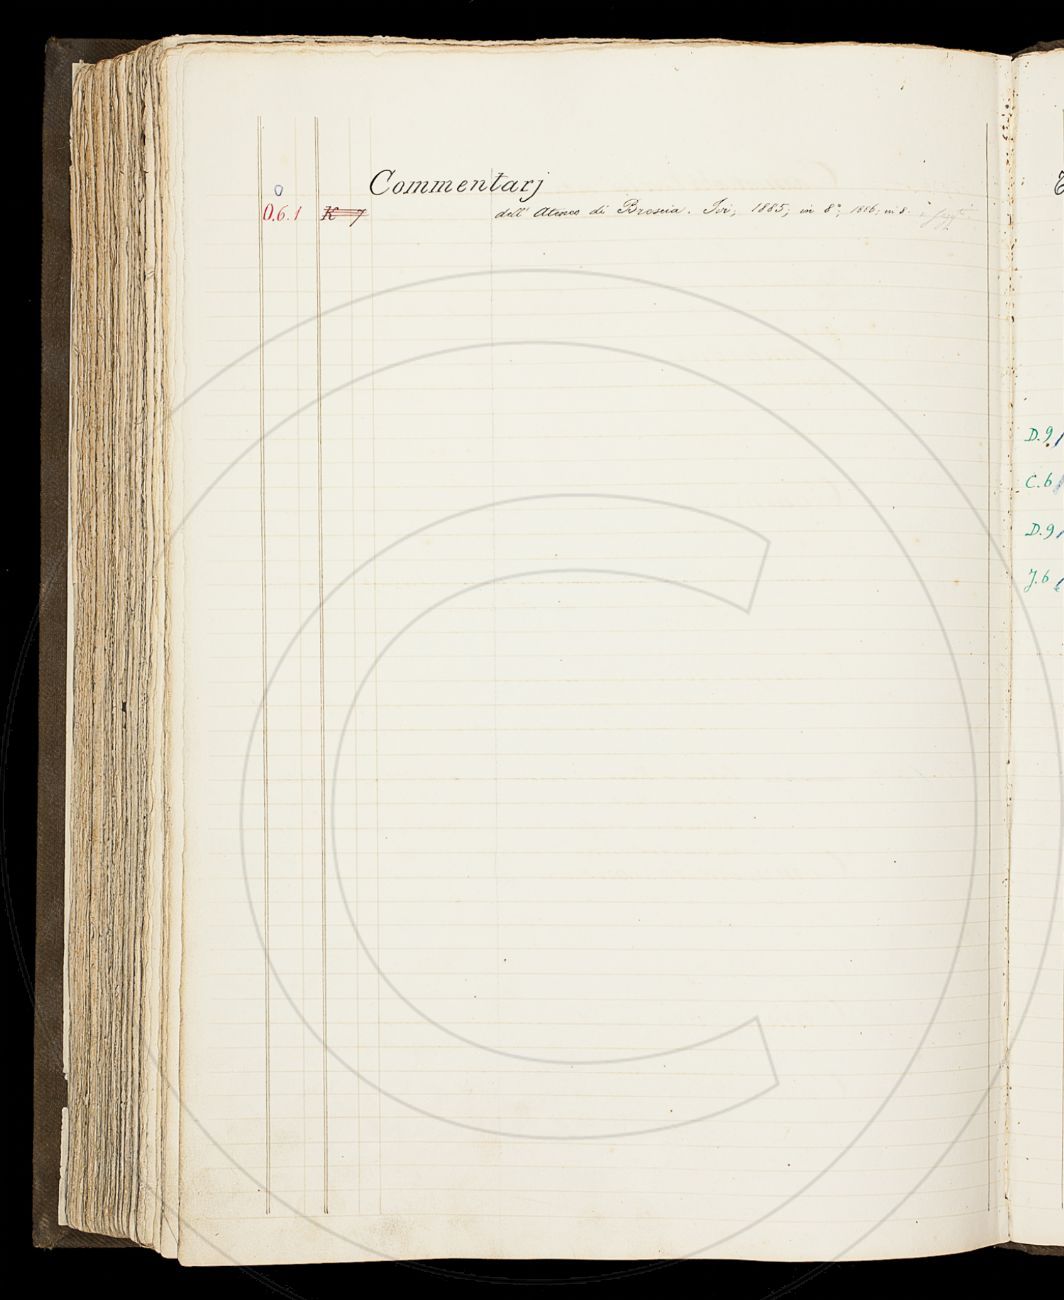 O
Commentarj
O.6.1 K 7 dell' Ateneo di Brescia. Ivi, 1885, in 8°; 1886, in 8°
D.9
C.6
D.9
J.6